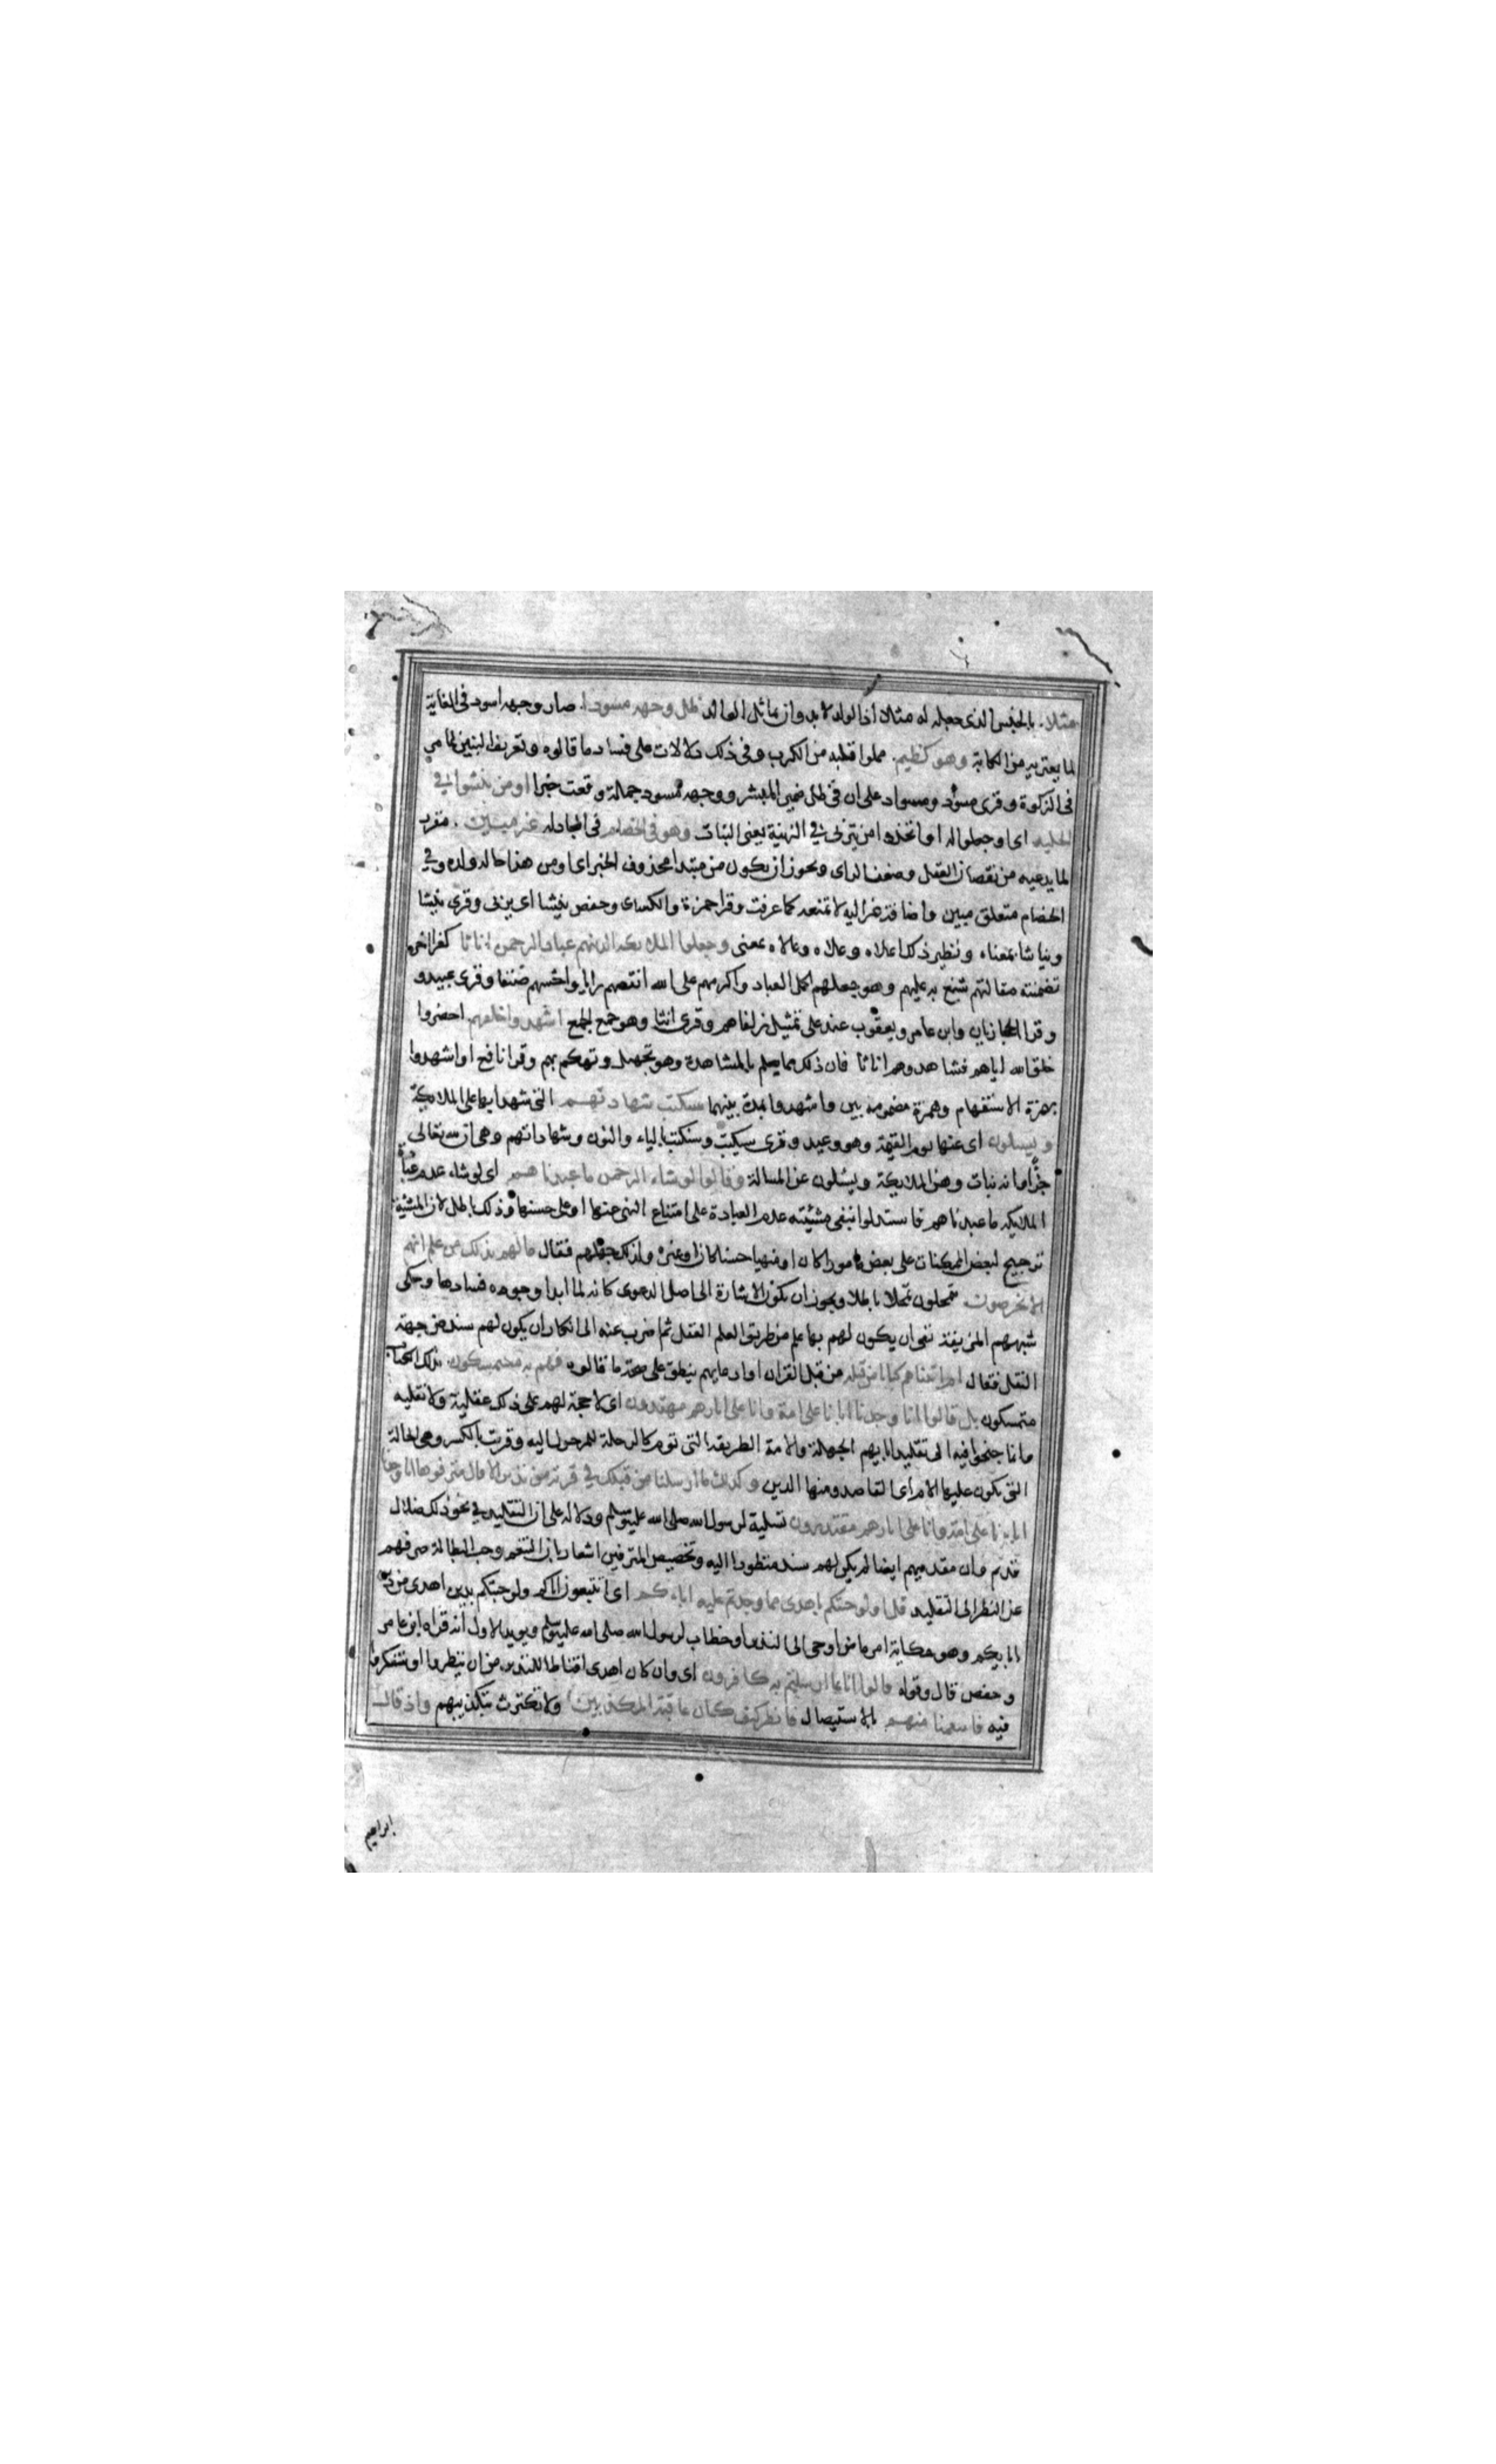 مثلا. بالجنس الذى جعله له مثلا اذ الولد لا بد وان يماثل الوالد ظل وجهه مسودا. صار وجهه اسود فى الغاية
لما يعتريه من الكابة وهو كظيم. مملوا قلبه من الكرب وفى ذلك دلالات على فساد ما قالوه وتعريف البنين لما مر
فى الذكورة وقرى مسود ومسواد على ان فى ظل ضمير المبشر ووجهه مسود جملة وقعت خبرا اومن ينشوا فى
الحليه اى اوجعلوا له او اتخذ من يتربى فى الزينة يعنى البنات وهو فى الخصام فى المجادله غير مبين. مقرر
لما يدعيه من نقصان العقل وضعف الراى ويجوز ان يكون من مبتدا محذوف الخبر اى اومن هذا حاله ولده وفى
الخصام متعلق مبين واضافة غير اليه لا تمنعه كما عرفت وقرا حمزة والكساى وحفص ينشا اى يربى وقرى ينشا
ويناشا بمعناه ونظير ذلك اعلاه وعلاه وعالاه بمعنى وجعلوا الملايكه الذينهم عباد الرحمن اناثا كفر اخر
تضمنته مقالتهم شنع به عليهم وهو جعلهم اكمل العباد واكرمهم على الله انقصهم رايا واخسهم صنفا وقرى عبيد و
وقرا الحجازيان وابن عامر ويعقوب عند على تمثيل زلفاهم وقرى انثا وهو جمع الجمع اشهدوا خلقهم احضروا
خلق الله اياهم فشاهدوهم اناثا فان ذلك مما يعلم بالمشاهدة وهو تجهيل وتهكم بهم وقرا نافع اواشهدوا
بهمزة الاستفهام وهمزة مضمومة بين واشهدوا بمدة بينهما سكتب شهادتهم التى شهدوا بها على الملايكة
ويسيلون اى عنها يوم القيمة وهو وعيد وقرى سيكتب وسنكتب بالياء والنون وشهاداتهم وهى ان لله تعالى
جزا وانه بنات وهن الملايكة ويسئلون عن المسالة وقالوا لو شاء الرحمن ما عبدناهم اى لو شاء عدم عبادة
الملايكه ما عبدناهم فاستدلوا بنفى مشيئته عدم العبادة على امتناع النهى عنها او على حسنها وذلك باطل لان المشيئة
ترجيح لبعض الممكنات على بعض مامورا كان او منهيا حسنا كان او غيره ولذلك جهلهم فقال مالهم بذلك من علم انهم
الا يخرصون يتمحلون تمحلا باطلا ويجوز ان يكون الاشارة الى اصل الدعوى كانه لما ابدا وجوه فسادها وحكى
شبهتهم المزيفة نفى ان يكون لهم بها علم من طريق العلم العقل ثم اضرب عنه الى انكار ان يكون لهم سند من جهة
النقل فقال ام اتيناهم كتابا من قبله من قبل القران او ادعايهم ينطق على صحة ما قالوه فهم به مستمسكون. بذلك الكتاب
متمسكون بل قالوا انا وجدنا اباءنا على امة وانا على اثارهم مهتدون اى لا حجة لهم على ذلك عقلية ولا نقليه
وانما جنحوا فيه الى تقليد ابايهم الجهلة والامة الطريقة التى توم كالرحلة للمرحول اليه وقريت بالكسر وهى الحالة
التى يكون عليها الام اى القاصد ومنها الدين وكذلك ما ارسلنا من قبلك فى قرية من نذير الا قال مترفوها انا وجدنا
اباءنا على امة وانا على اثارهم مقتدون تسلية لرسول الله صلى الله عليه وسلم ودلاله على ان التقليد فى نحو ذلك ضلال
قديم وان مقدميهم ايضا لم يكن لهم سند منظور اليه وتخصيص المترفين اشعار بان التنعم وحب البطالة صرفهم
عن النظر الى التقليد قل اولو جئتكم باهدى مما وجدتم عليه اباءكم اى اتتبعون اباكم ولو جئتكم بدين اهدى من دين
ابايكم وهو حكاية امر ماض اوحى الى النذير او خطاب لرسول الله صلى الله عليه وسلم ويويد الاول انه قراه ابن عامر
وحفص قال وقوله قالوا انا بما ارسلتم به كافرون اى وان كان اهدى اقناطا للنذير من ان ينظروا او يتفكروا
فيه فانتقمنا منهم بالاستيصال فانظر كيف كان عاقبة المكذبين ولا تكترث بتكذيبهم واذ قال
ابراهيم